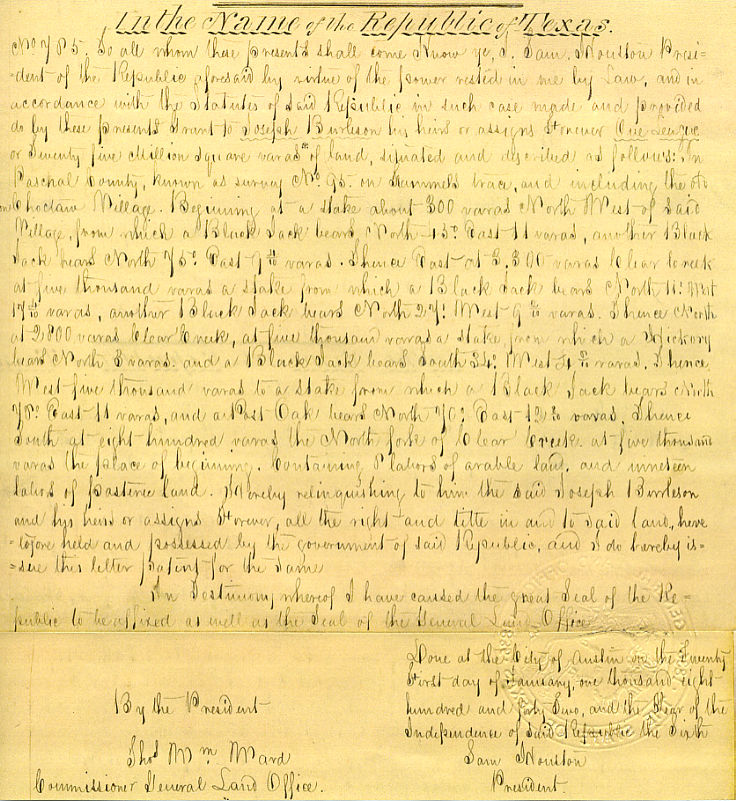 In the Name of the Republic of Texas.
No 785. To all whom these presents shall come Know ye, I. Sam. Houston Presi=
=dent of the Republic aforesaid by virtue of the power vested in me by Law, and in
accordance with the Statutes of said Republic in such case made and provided
do by these presents Grant to Joseph Burleson his heirs or assigns Forever One League
or Twenty five Million square varas of land, situated and described as follows: In
Paschal County, known as survey No 95 on Trammels trace, and including the old
Choctaw Village. Beginning at a stake about 300 varas North West of said
Village, from which a Black Jack bears North 15° East 11 varas, another Black
Jack bears North 75° East 9 varas. Thence East at 3,300 varas Clear Creek
at five thousand varas a stake from which a Black Jack bears North 11° West
17 varas, another Black Jack bears North 27° West 9 varas. Thence North
at 2800 varas Clear Creek, at five thousand varas a stake from which a Hickory
bears North 8 varas. and a Black Jack bears South 34° West varas. Thence
West five thousand varas to a stake from which a Black Jack bears North
78° East 11 varas, and a Post Oak bears North 70° East 12 varas. Thence
South at eight hundred varas the North fork of Clear Creek. at five thousand
varas the place of beginning. Containing labors of arable land, and nineteen
labors of pasture land. Hereby relinquishing to him the said Joseph Burleson
and his heirs or assigns Forever, all the right and title in and to said land, here
=tofore held and possessed by the government of said Republic, and I do hereby is=
=sue this letter patent for the same
In Testimony whereof I have caused the great Seal of the Re=
public to be affixed as well as the Seal of the General Land Office
Done at the City of Austin on the Twenty
First day of January, one thousand eight
hundred and forty Two, and the Year of the
Independence of said Republic the Sixth
By the President
Thos Wm Ward
Commissioner General Land Office.
Sam Houston
President.